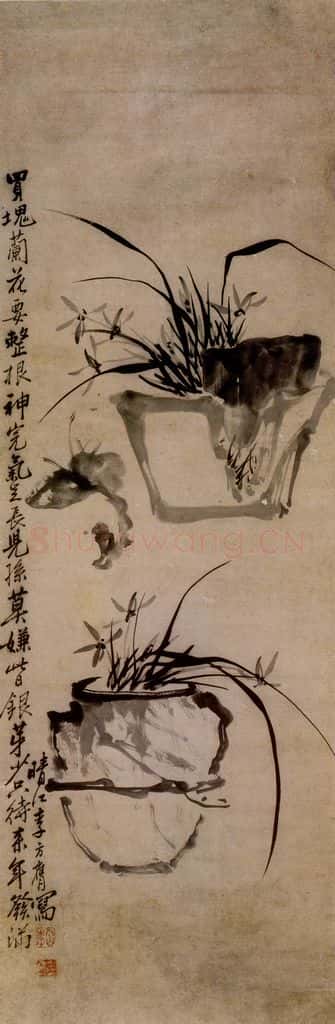 買塊蘭花要整根神完氣足長兒孫莫嫌此日銀芽少只待來年發滿
晴江李方膺寫
Shuhuawang.CN